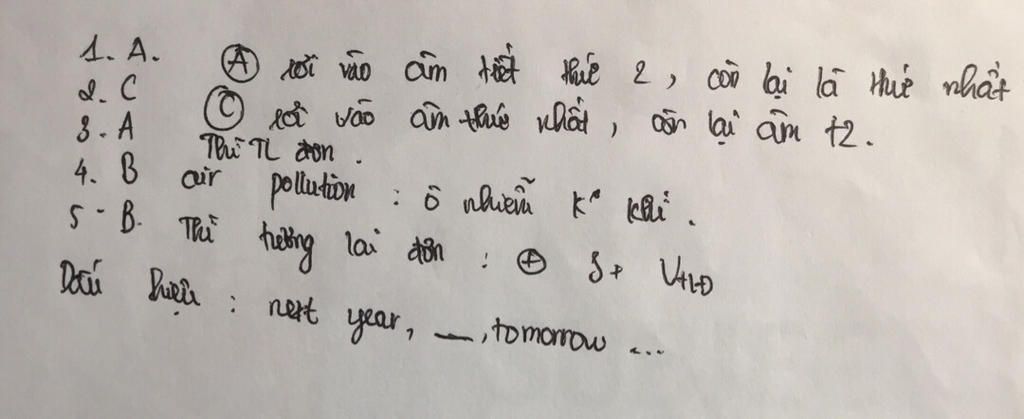 1. A. Ⓐ rơi vào âm tiết thứ 2, còn lại là thứ nhất
2. C Ⓒ rơi vào âm thứ nhất, còn lại âm t2.
3. A Thì TL đơn.
4. B air pollution : ô nhiễm k° khí.
5 - B. Thì tương lai đơn : ⊕ S +
Dấu hiệu : next year, __, tomorrow ...